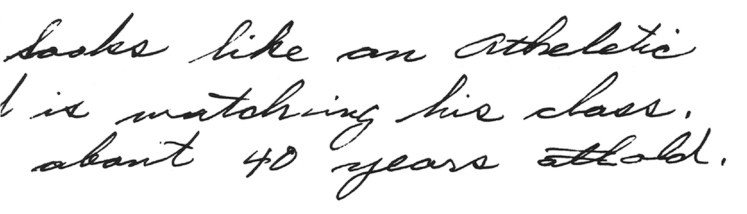 looks like an atheletic
is watching his class.
about 40 years old.